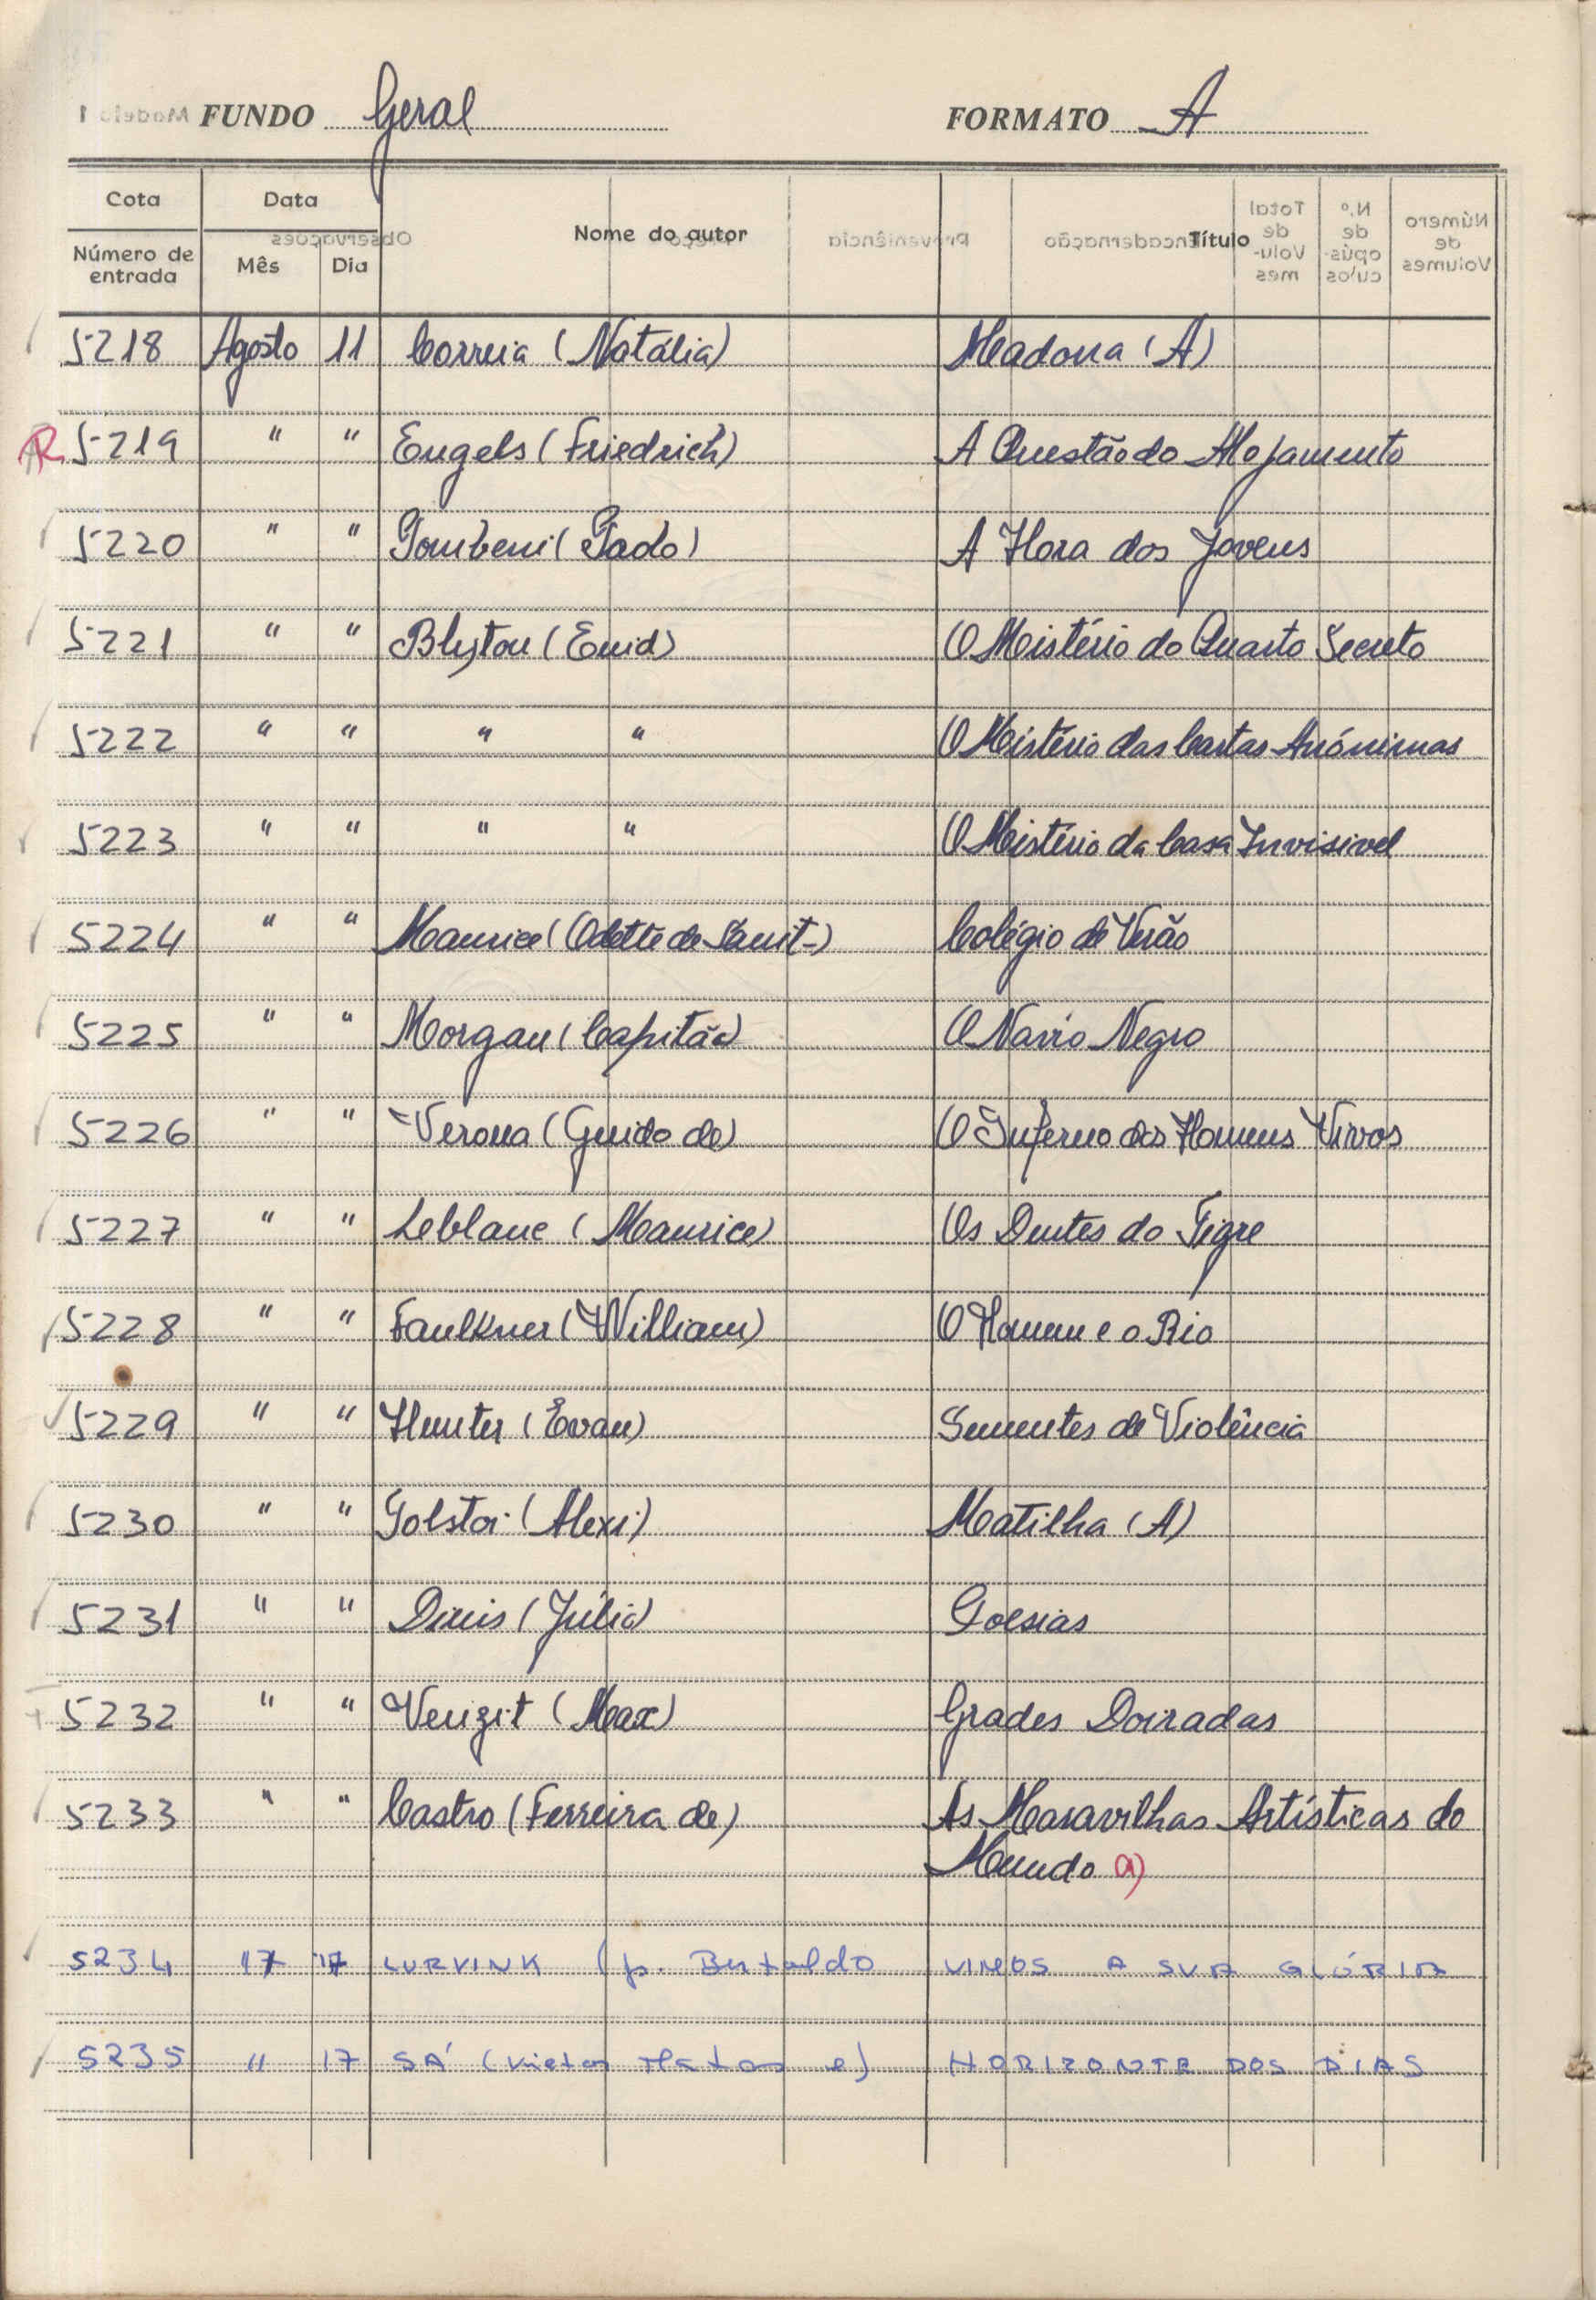 FUNDO Geral FORMATO A
Cota Data Nome do autor Título
Número de entrada Mês Dia
5218 Agosto 11 Correia (Natália) Madona (A)
R 5219 " " Engels (Friedrich) A Questão do Alojamento
5220 " " Pombeni (Pado) A Hora dos Jovens
5221 " " Blyton (Enid) O Mistério do Quarto Secreto
5222 " " " " O Mistério das Cartas Anónimas
5223 " " " " O Mistério da Casa Invisivel
5224 " " Maurice (Odette de Saint-) Colégio de Verão
5225 " " Morgan (Capitão) O Navio Negro
5226 " " Verona (Guido de) O Inferno dos Homens Vivos
5227 " " Leblanc (Maurice) Os Dentes do Tigre
5228 " " Faulkner (William) O Homem e o Rio
5229 " " Hunter (Evan) Sementes de Violência
5230 " " Tolstoi (Alexi) Matilha (A)
5231 " " Dinis (Júlio) Poesias
5232 " " Venzit (Max) Grades Doiradas
5233 " " Castro (Ferreira de) As Maravilhas Artísticas do
Mundo a)
5234 17 17 LURVINK (p. Bertaldo VIMOS A SUA GLÓRIA
5235 " 17 SÁ (Victor Matos e) HORIZONTE DOS DIAS